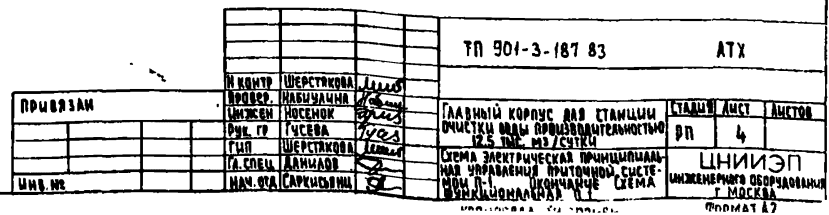 ТП 901-3-187 83 АТХ
ПРИВЯЗАН
ИНВ. №
Н КОНТР ШЕРСТЯКОВА
ПРОВЕР. НАБИУЛИНА
ИНЖЕН НОСЕНОК
РУК. ГР ГУСЕВА
ГИП ШЕРСТЯКОВА
ГЛ. СПЕЦ ДАНИЛОВ
НАЧ. ОТД САРКИСЬЯНЦ
ГЛАВНЫЙ КОРПУС ДЛЯ СТАНЦИИ
ОЧИСТКИ ВОДЫ ПРОИЗВОДИТЕЛЬНОСТЬЮ
12.5 ТЫС. М3/СУТКИ
СТАДИЯ ЛИСТ ЛИСТОВ
РП 4
СХЕМА ЭЛЕКТРИЧЕСКАЯ ПРИНЦИПИАЛЬ-
НАЯ УПРАВЛЕНИЯ ПРИТОЧНОЙ СИСТЕ-
МОЙ П-1 ОКОНЧАНИЕ СХЕМА
ФУНКЦИОНАЛЬНАЯ П.1
ЦНИИЭП
ИНЖЕНЕРНОГО ОБОРУДОВАНИЯ
Г МОСКВА
ФОРМАТ А2